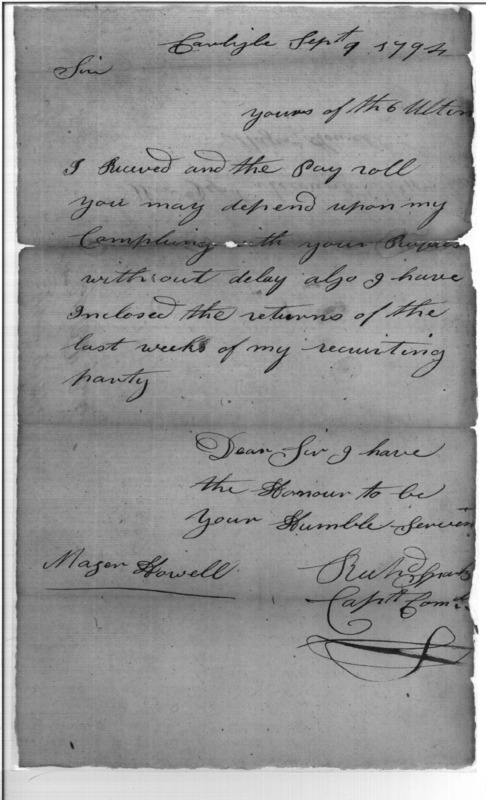 Carlisle Sept 9 1794
Sir
yours of the 6 Ultim
I Receved and the Pay roll
you may depend upon my
Complying with your
without delay also I have
Inclosed the returns of the
last weeks of my recruiting
party
Dear Sir I have
the Honour to be
your Humble Serven
Mager Howell
Capt Comt